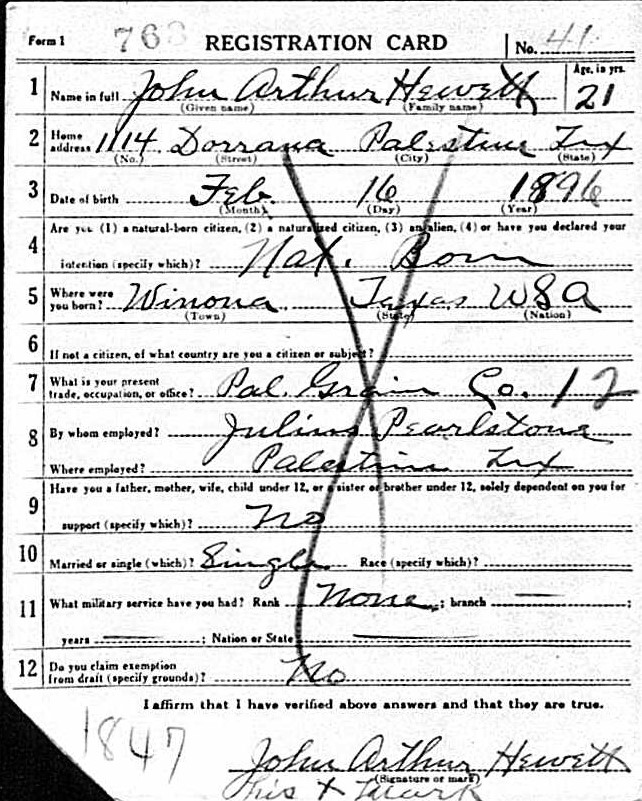 Form 1 763 REGISTRATION CARD No. 41
1 Name in full John Arthur Hewett Age, in yrs. 21
(Given name) (Family name)
2 Home address 1114 Dorrana Palestine Tex
(No.) (Street) (City) (State)
3 Date of birth Feb. 16 1896
(Month) (Day) (Year)
Are you (1) a natural-born citizen, (2) a naturalized citizen, (3) an alien, (4) or have you declared your
4 intention (specify which)? Nat. Born
5 Where were you born? Winona Texas USA
(Town) (State) (Nation)
6 If not a citizen, of what country are you a citizen or subject?
7 What is your present trade, occupation, or office? Pal. Grain Co. 12
8 By whom employed? Julius Pearlstona
Where employed? Palestine Tex
9 Have you a father, mother, wife, child under 12, or a sister or brother under 12, solely dependent on you for
support (specify which)? No
10 Married or single (which)? Single Race (specify which)?
11 What military service have you had? Rank None ; branch ;
years ; Nation or State
12 Do you claim exemption from draft (specify grounds)? No
I affirm that I have verified above answers and that they are true.
1847
John Arthur Hewett
(Signature or mark)
his x mark